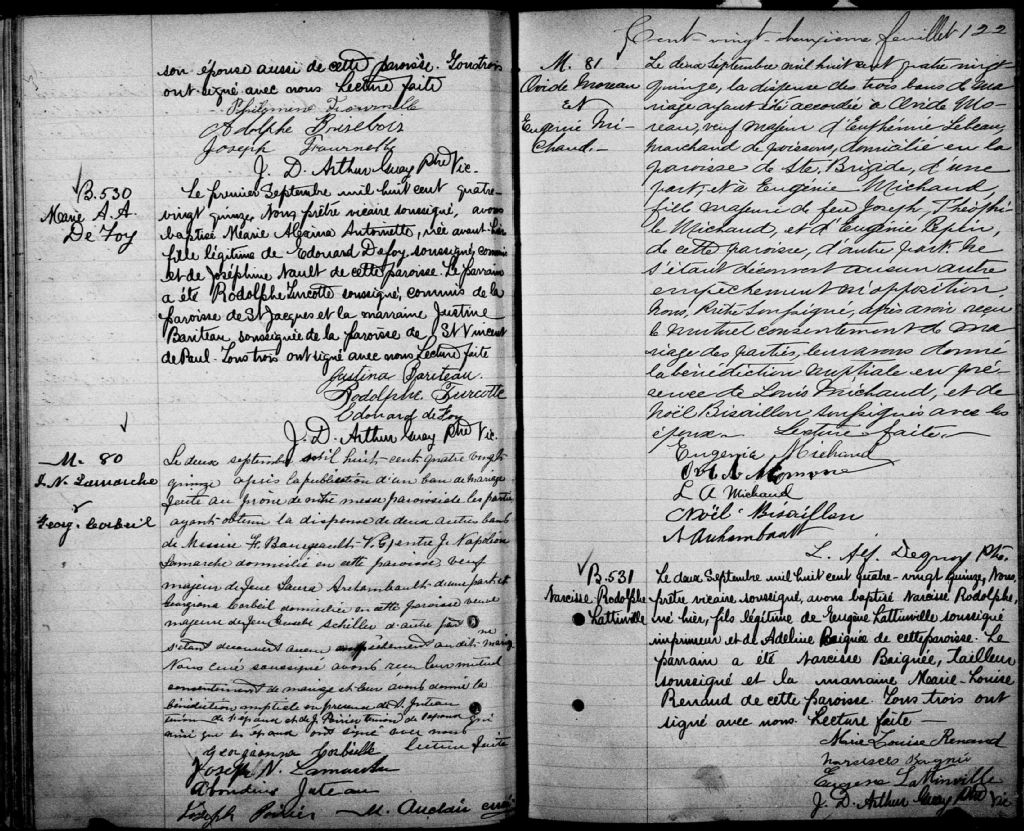 son épouse aussi de cette paroisse. Tous trois
ont signé avec nous Lecture faite
Adolphe Boisebois
Joseph
J. D. Arthur Guay Ptre Vic.
B. 530
Marie A. A.
De Foy
Le premier Septembre mil huit cent quatre-
vingt quinze, Nous prêtre vicaire soussigné, avons
baptisé Marie Antoinette, née avant-hier
fille légitime de Edouard Defoy soussigné, commis
et de Joséphine Nault de cette paroisse. Le parrain
a été Rodolphe Turcotte soussigné, commis de la
paroisse de St Jacques et la marraine Justine
Bariteau soussignée de la paroisse de St Vincent
de Paul. Tous trois ont signé avec nous Lecture faite
Justina Bariteau
Rodolphe Turcotte
Edouard de Foy
J. D. Arthur Guay Ptre Vic.
M. 80
J. N. Lamarche
&
Georg. Corbeil
Le deux septembre mil huit-cent quatre vingt
quinze après la publication d'un ban de mariage
faite au prône de notre messe paroissiale les parties
ayant obtenu la dispense de deux autres bans
de Messire F. Bourgeault V. G. entre J. Napoléon
Lamarche domicilié en cette paroisse veuf
majeur de feue Laura Archambault d'une part et
Georgiana Corbeil domiciliée en cette paroisse veuve
majeure de feu Schiller d'autre part ne
s'étant découvert aucun empêchement au dit mariage
Nous curé soussigné avons reçu leur mutuel
consentement de mariage et leur avons donné la
bénédiction nuptiale en présence de Juteau
témoin de l'épouse et de J. Poirier témoin de l'époux qui
ainsi que les époux ont signé avec nous
lecture faite
Georgianna Corbeille
Joseph N. Lamarche
Juteau
Joseph Poirier M. Auclair curé
Cent-vingt-deuxième feuillet 122
M. 81
Ovide Moreau
et
Eugénie Mi-
chaud.-
Le deux Septembre mil huit cent quatre vingt
quinze, la dispense des trois bans de ma-
riage ayant été accordée à Ovide Mo-
reau, veuf majeur d'Euphémie Lebeau,
marchand de poissons, domicilié en la
paroisse de Ste. Brigide, d'une
part, et à Eugénie Michaud,
fille majeure de feu Joseph Théophi-
le Michaud, et d'Eugénie Pépin,
de cette paroisse, d'autre part. Ne
s'étant découvert aucun autre
empêchement ni opposition,
nous, Prêtre soussigné, après avoir reçu
le mutuel consentement de ma-
riage des parties, leur avons donné
la bénédiction nuptiale en pré-
sence de Louis Michaud, et de
Noël Bisaillon soussignés avec les
époux. Lecture faite.
Eugenia Michaud
L A Michaud
Noël Bisaillon
A Archambault
L. Alf. Dequoy Ptr.
B. 531
Narcisse Rodolphe
Lattinville
Le deux Septembre mil huit cent quatre-vingt quinze, Nous,
prêtre vicaire soussigné, avons baptisé Narcisse Rodolphe,
né hier, fils légitime de Eugène Lattinville soussigné
imprimeur et de Adéline Baignée de cette paroisse. Le
parrain a été Narcisse Baignée, tailleur
soussigné et la marraine Marie-Louise
Renaud de cette paroisse. Tous trois ont
signé avec nous. Lecture faite —
Marie Louise Renaud
Eugene Lattinville
J. D. Arthur Guay Ptre Vic